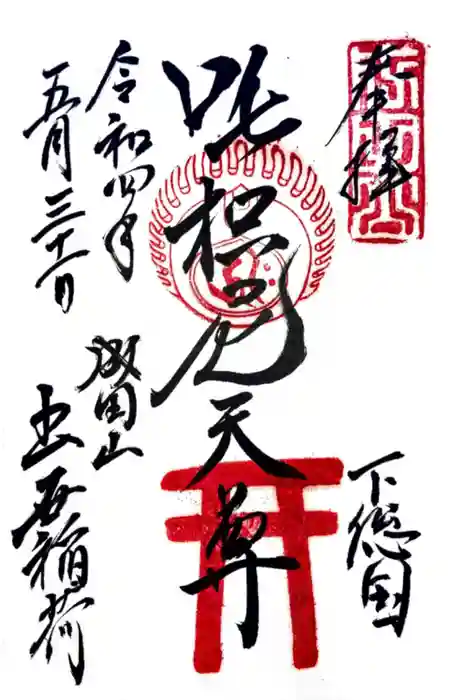 奉拝
下総国
吒枳尼天尊
令和四年
五月三十一日
成田山
出世稲荷